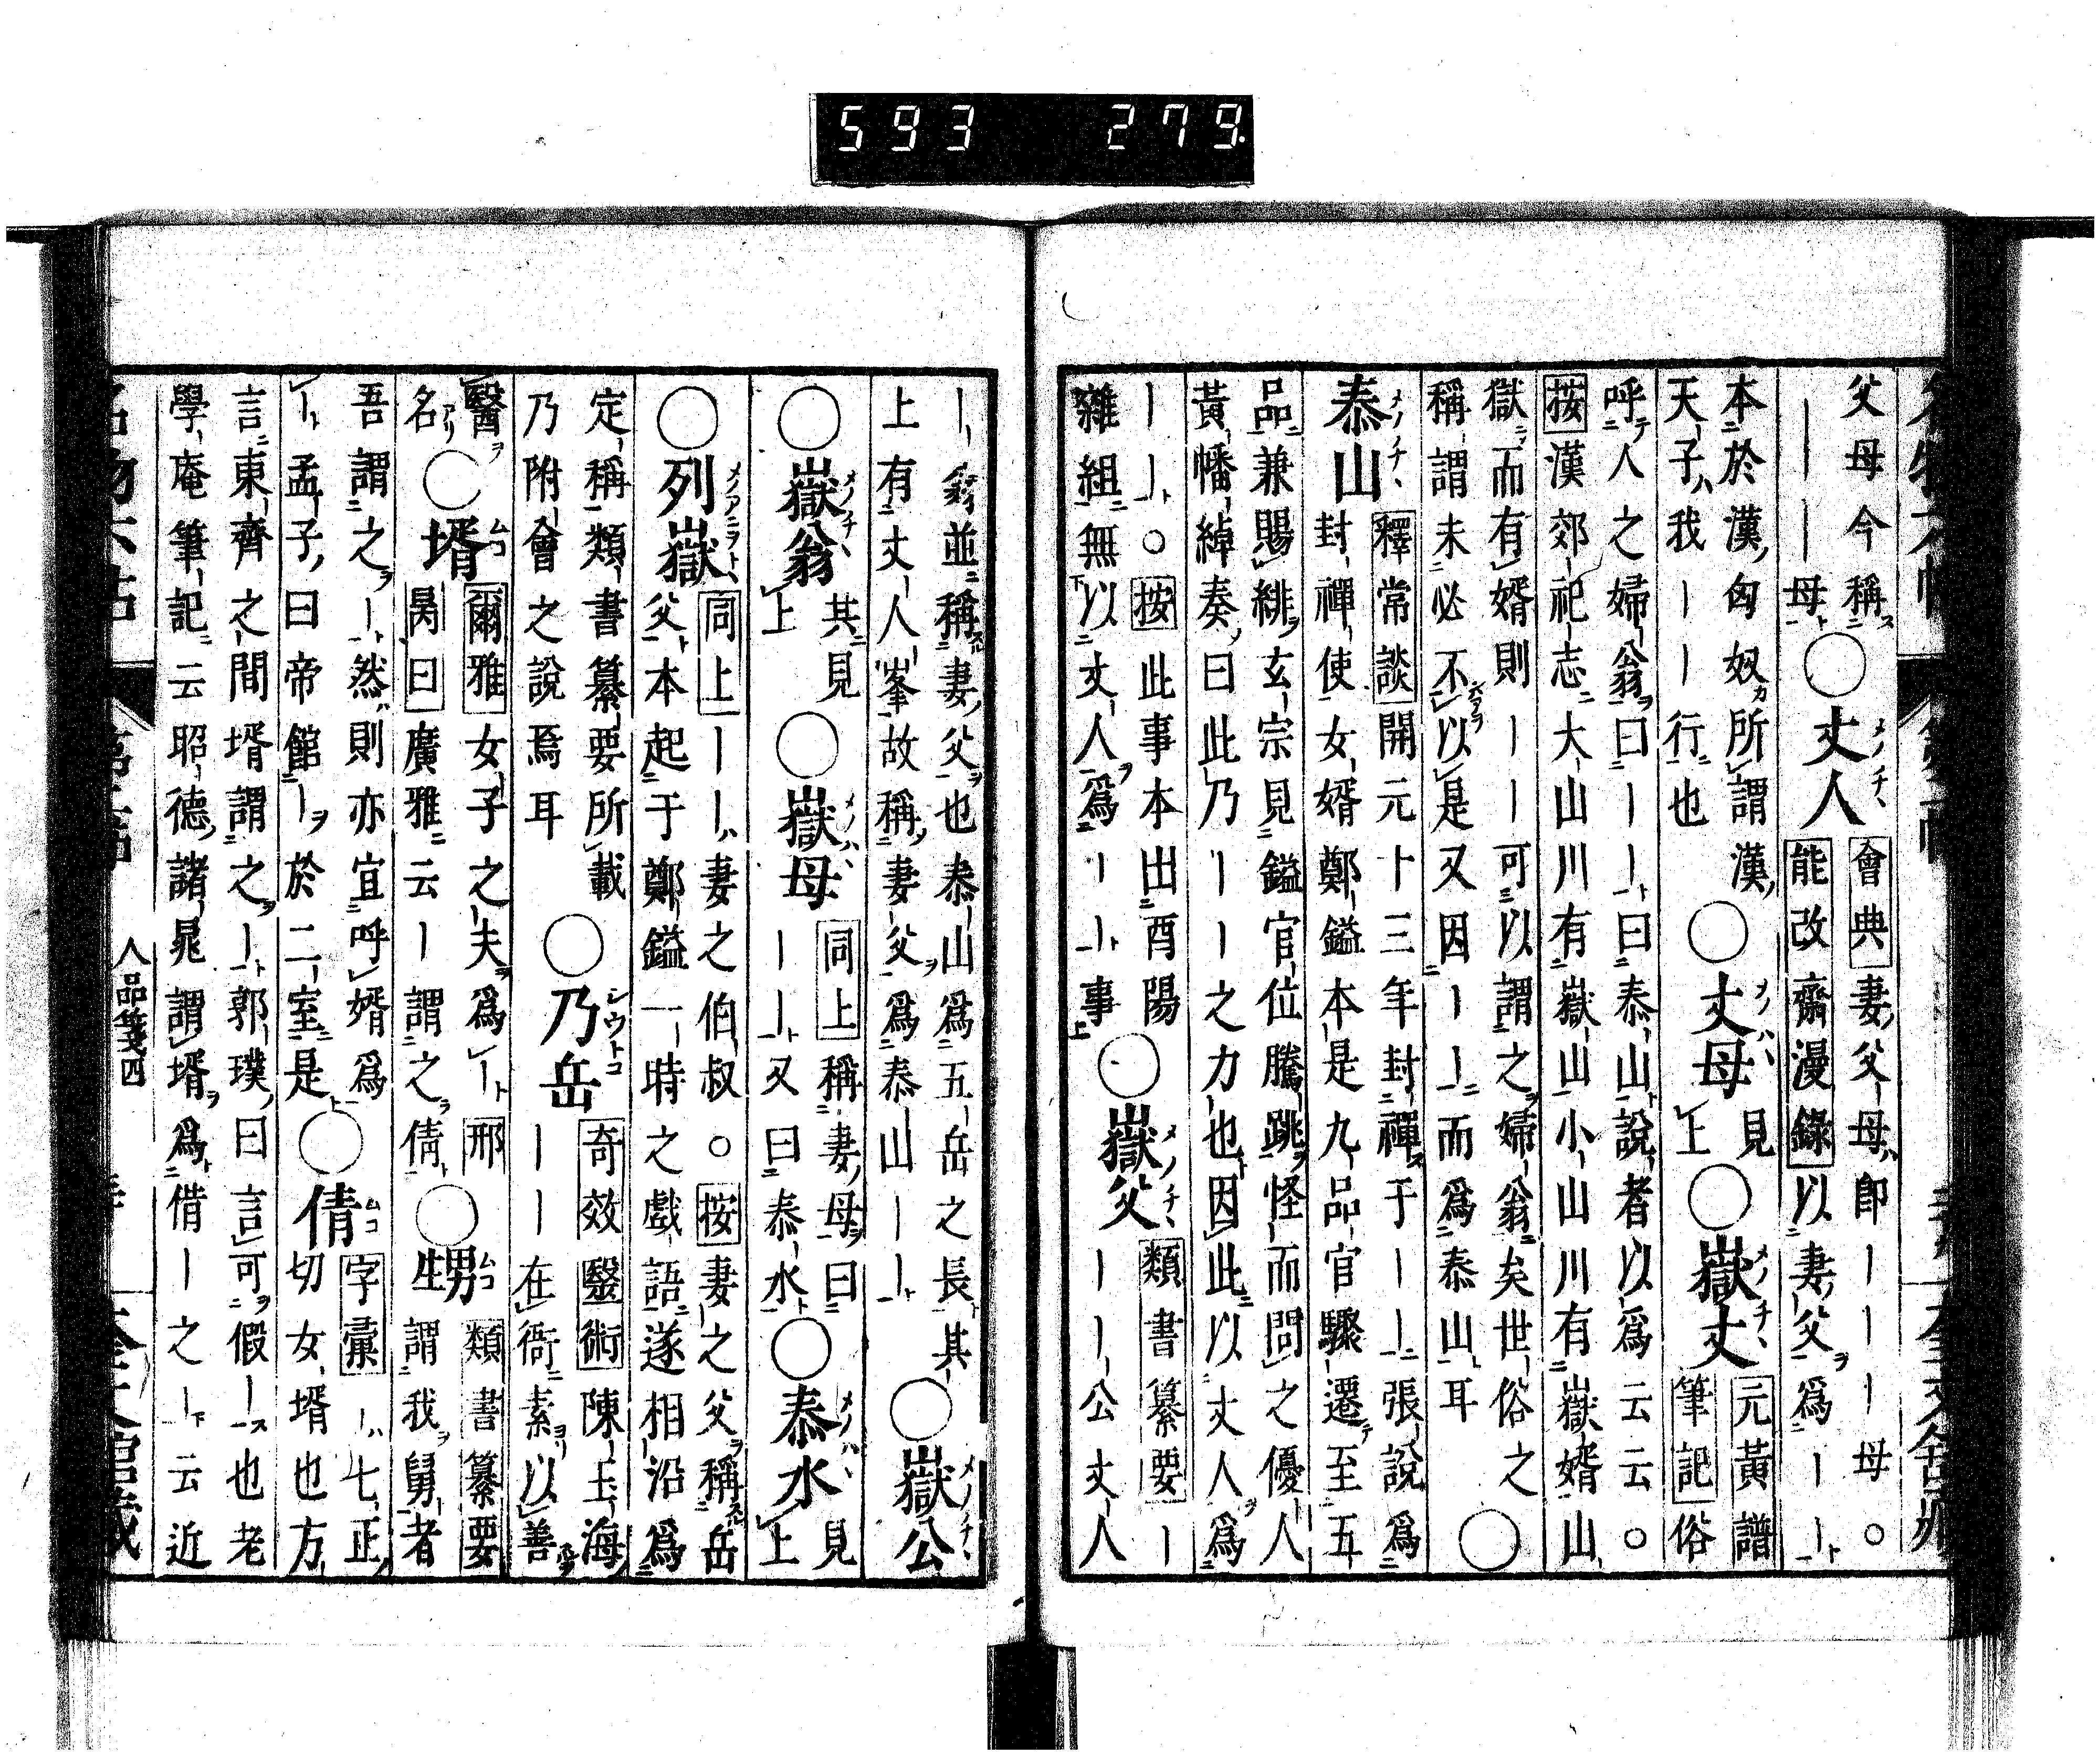 593 279
父母今稱
｜｜｜母○丈人會典妻父母卽｜｜｜母○
能改齋漫錄以妻父爲｜｜
本於漢匈奴所謂漢
天子我｜｜行也○丈母見上○嶽丈元黃譜筆記俗
呼人之婦翁曰｜｜曰泰山說者以爲云云○
按漢郊祀志大山川有嶽山小山川有嶽婿山
獄而有婿則｜｜可以謂之婦翁矣世俗之
稱謂未必不以是又因｜｜而爲泰山耳○
泰山釋常談開元十三年封禪于｜｜張說爲
封禪使女婿鄭鎰本是九品官驟遷至五
品兼賜緋玄宗見鎰官位騰跳怪而問之優人
黃幡綽奏曰此乃｜｜之力也因此以丈人爲
｜｜○按此事本出酉陽
雜組無以丈人爲｜｜事○嶽父類書纂要｜
｜｜公丈人
｜翁並稱妻父也泰山爲五岳之長其
上有丈人峯故稱妻父爲泰山｜｜○嶽公
○嶽翁其見上○嶽母同上稱妻母曰
｜｜又曰泰水○泰水見上
○列嶽同上｜｜妻之伯叔○按妻之父稱岳
父本起于鄭鎰一時之戲語遂相沿爲
定稱類書纂要所載
乃附會之說焉耳○乃岳奇效毉術陳玉海
｜｜在衙素以善
醫名○壻爾雅女子之夫爲｜邢
昺曰廣雅云｜謂之倩○甥類書纂要
謂我舅者
吾謂之｜然則亦宜呼婿爲
｜孟子曰帝館｜於二室是○倩字彙｜七正
切女壻也方
言東齊之間壻謂之｜郭璞曰言可假｜也老
學庵筆記云昭德諸晁謂壻爲借｜之｜云近
人品箋四